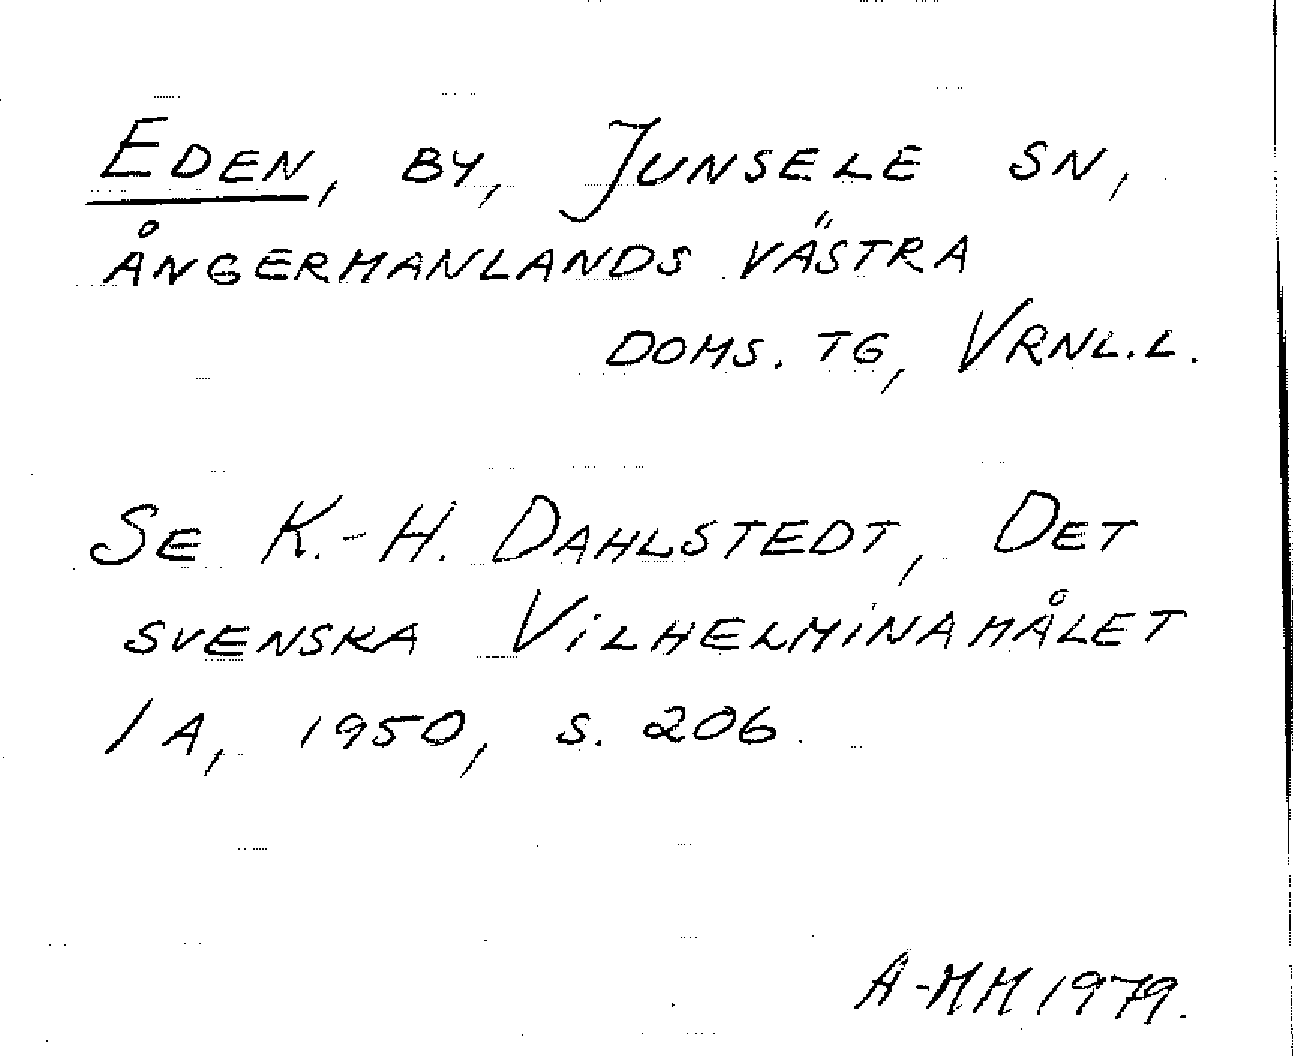 EDEN, BY, JUNSELE SN,
ÅNGERMANLANDS VÄSTRA
DOMS. TG, VRNL.L.
SE K.-H. DAHLSTEDT, DET
SVENSKA VILHELMINAMÅLET
1 A, 1950, S. 206.
A-MM 1979.